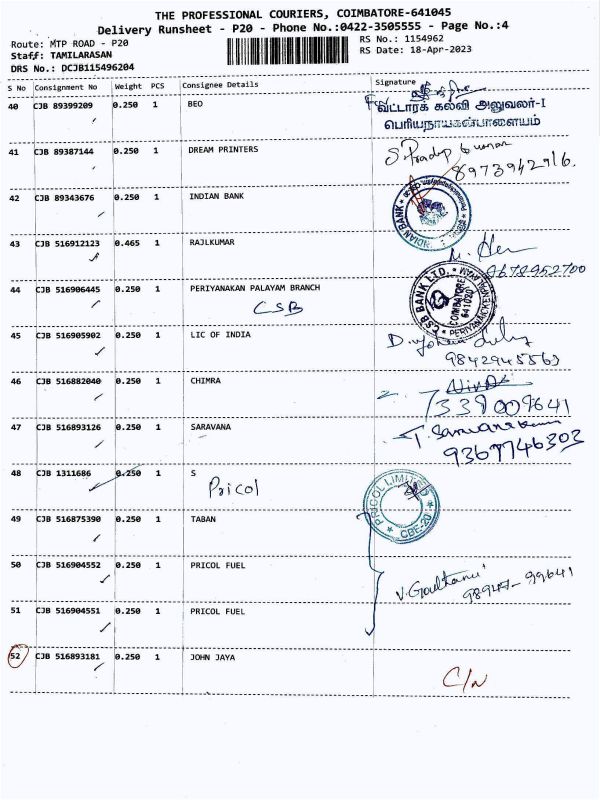 THE PROFESSIONAL COURIERS, COIMBATORE-641045
Delivery Runsheet - P20 - Phone No.:0422-3505555 - Page No.:4
Route: MTP ROAD - P20
RS No.: 1154962
Staff: TAMILARASAN
RS Date: 18-Apr-2023
DRS No.: DCJB115496204
S No Consignment No Weight PCS Consignee Details Signature
40 CJB 89399209 0.250 1 BEO
வட்டாரக் கல்வி அலுவலர்-I
பெரியநாயகன்பாளையம்
41 CJB 89387144 0.250 1 DREAM PRINTERS
8973942916.
42 CJB 89343676 0.250 1 INDIAN BANK
INDIAN BANK
43 CJB 516912123 0.465 1 RAJLKUMAR
9678952700
44 CJB 516906445 0.250 1 PERIYANAKAN PALAYAM BRANCH
CSB
CSB BANK LTD.
COIMBATORE
641020
45 CJB 516905902 0.250 1 LIC OF INDIA
9842945563
46 CJB 516882040 0.250 1 CHIMRA
7339009641
47 CJB 516893126 0.250 1 SARAVANA
9367746303
48 CJB 1311686 0.250 1 S
Pricol
PRICOL LIMITED
CBE-20
49 CJB 516875390 0.250 1 TABAN
50 CJB 516904552 0.250 1 PRICOL FUEL
98947-99641
51 CJB 516904551 0.250 1 PRICOL FUEL
52 CJB 516893181 0.250 1 JOHN JAYA
C/N